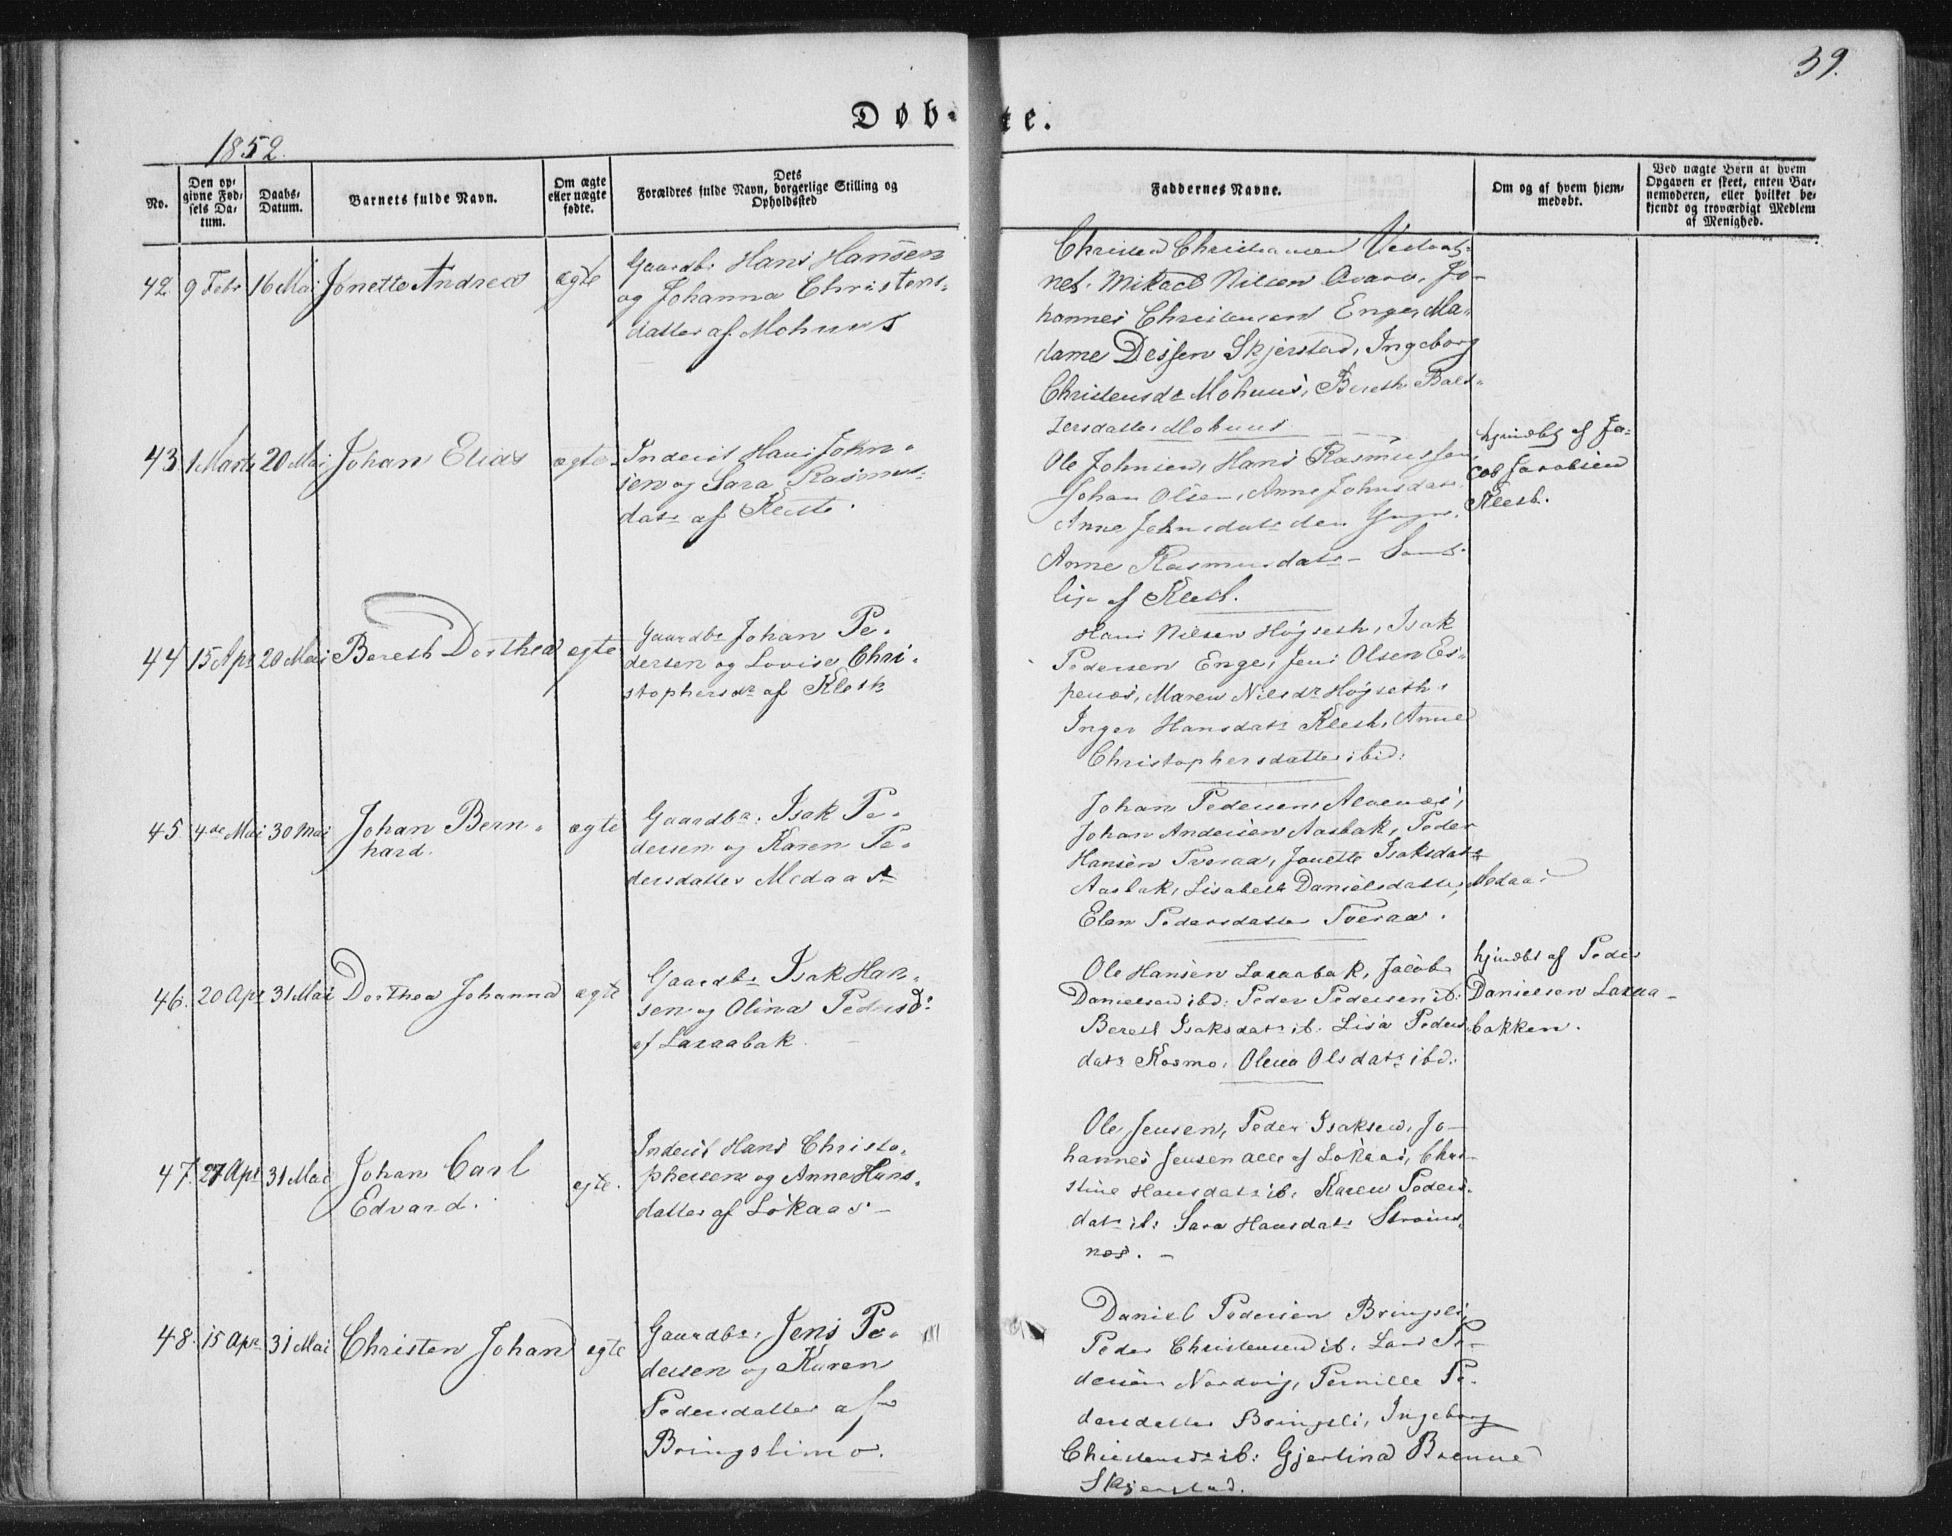 39.
Døbte.
1852.
No.
Den opgivne Fødsels Datum.
Daabs-Datum.
Barnets fulde Navn.
Om ægte eller uægte fødte.
Dets Forældres fulde Navn, borgerlige Stilling og Opholdssted
Faddernes Navne.
Om og af hvem hjemmedøbt.
Ved uægte Børn af hvem Opgaven er skeet, enten Barnemoderen, eller hvilket bekjendt og troværdigt Medlem af Menighed.
42. 9 Febr 16 Mai Jonette Andrea ægte
Gaardbr Hans Hansen
og Johanna Christens-
datter af Mohuus
Christen Christensen
nes. Mikael Nilsen Jo-
hannes Christensen Enge, Ma-
dame Dessen Skjerstad, Ingeborg
Christensdr Mohuus, Bereth Balt-
zersdatter Mohuus
43. 1 Marts 20 Mai Johan Elias ægte
Inderst Hans John-
sen og Sara Rasmus-
datr af Kleste.
Ole Johnsen, Hans Rasmussen,
Johan Olsen, Anne Johnsdatr
Anne Johnsdatr den Yngre,
Anne Rasmusdatr - Samt-
lige af Klest.
hjmdbt af Ja-
cob Jacobsen
Klest.
44 15 Apr 20 Mai Bereth Dorthea ægte
Gaardbr Johan Pe-
dersen og Lovise Chri-
stophersdr af Klesth
Hans Nilsen Høgseth, Isak
Pedersen Enge, Jens Olsen Es-
penæs, Maren Nilsdr Høgseth,
Inger Hansdatr Klesth, Anne
Christophersdatter ibid:
45 4de Mai 30 Mai Johan Bern-
hard.
ægte
Gaardbr: Isak Pe-
dersen og Karen Pe-
dersdatter Medaas
Johan Pedersen Alvenæs,
Johan Andersen Aasbak, Peder
Hansen Tveraa, Jonette Isaksdatr
Aasbak, Lisabeth Danielsdatter Medaas
Elen Pedersdatter Tveraa.
46. 20 Apr 31 Mai Dorthea Johanna ægte
Gaardbr Isak Han-
sen og Olina Pedersd:
af Laxaabak
Ole Hansen Laxaabak, Jacob
Danielsen ibd: Peder Pedersen ib:
Bereth Isaksdatr ib: Lisa Peders
datr Kosmo, Olena Olsdatr ibd:
hjmdbt af Peder
Danielsen Laxaa-
bakken.
47. 27 Apr 31 Mai Johan Carl
Edvard.
egte.
Inderst Hans Christo-
phersen og Anne Hans-
datter af Løkaas -
Ole Jensen, Peder Isaksen, Jo-
hannes Jensen alle af Løkaas, Chri-
stine Hansdatr ib: Karen Peders-
datr ib: Sara Hansdatr Strøms-
næs. -
48. 15 Apr 31 Mai Christen Johan egte
Gaardbr: Jens Pe-
dersen og Karen
Pedersdatter af
Bringslimo.
Daniel Pedersen Bringsli,
Peder Christensen ib: Lars Pe-
dersen Nordvig, Pernille Pe-
dersdatter Bringsli, Ingeborg
Christensdr ib: Gjertina Brenne
Skjerstad.